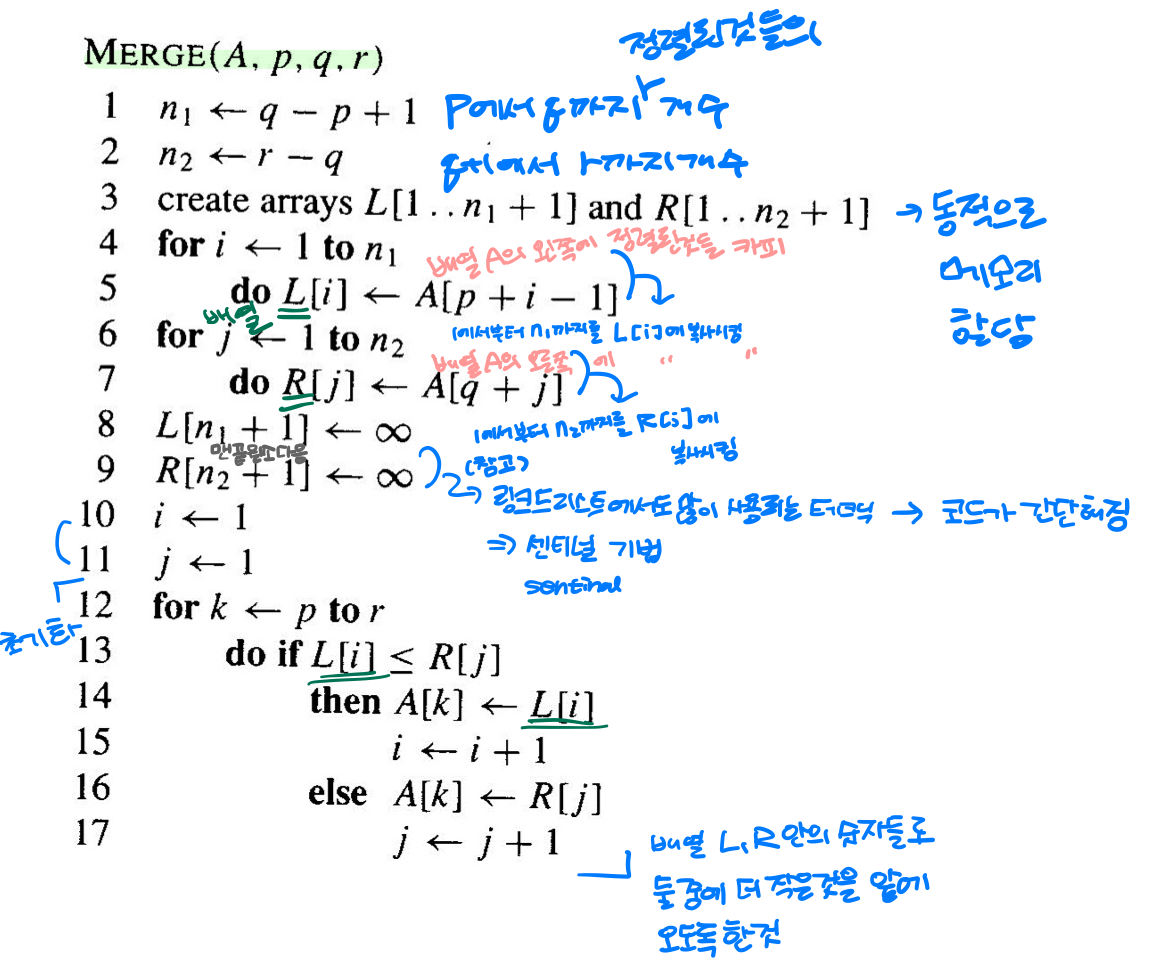 정렬된것들의
MERGE(A, p, q, r)
1 n₁ ← q − p + 1 P에서 q까지 개수
2 n₂ ← r − q q+1에서 r까지 개수
3 create arrays L[1 . . n₁ + 1] and R[1 . . n₂ + 1] → 동적으로 메모리 할당
4 for i ← 1 to n₁
배열 A의 왼쪽에 정렬된것들 카피
5 do L[i] ← A[p + i − 1]
배열
1에서부터 n₁까지를 L[i]에 복사시킴
6 for j ← 1 to n₂
배열 A의 오른쪽에 " "
7 do R[j] ← A[q + j]
1에서부터 n₂까지를 R[j]에 복사시킴
8 L[n₁ + 1] ← ∞
맨끝원소다음
(참고)
9 R[n₂ + 1] ← ∞
→ 링크드리스트에서도 많이 사용되는 테크닉 → 코드가 간단해짐
⇒ 센티널 기법
sentinal
10 i ← 1
11 j ← 1
초기화
12 for k ← p to r
13 do if L[i] ≤ R[j]
14 then A[k] ← L[i]
15 i ← i + 1
16 else A[k] ← R[j]
17 j ← j + 1
배열 L, R 안의 숫자들로
둘중에 더 작은것을 앞에
오도록 한것